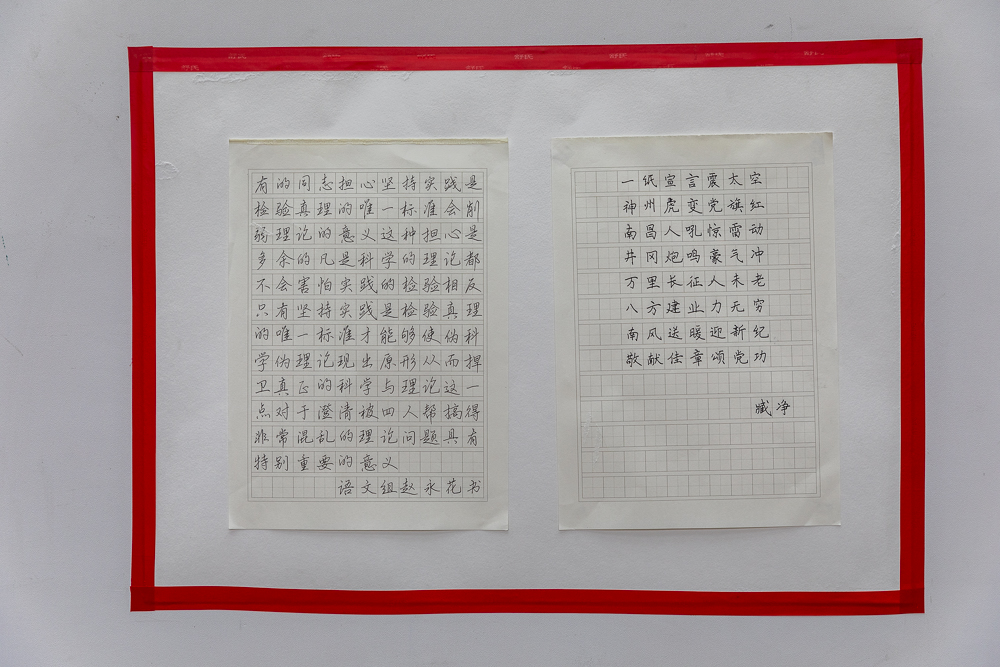 有的同志担心坚持实践是
检验真理的唯一标准会削
弱理论的意义这种担心是
多余的凡是科学的理论都
不会害怕实践的检验相反
只有坚持实践是检验真理
的唯一标准才能够使伪科
学伪理论现出原形从而捍
卫真正的科学与理论这一
点对于澄清被四人帮搞得
非常混乱的理论问题具有
特别重要的意义
语文组赵永花书
一纸宣言震太空
神州虎变党旗红
南昌人吼惊雷动
井冈炮鸣豪气冲
万里长征人未老
八方建业力无穷
南风送暖迎新纪
敬献佳章颂党功
臧净